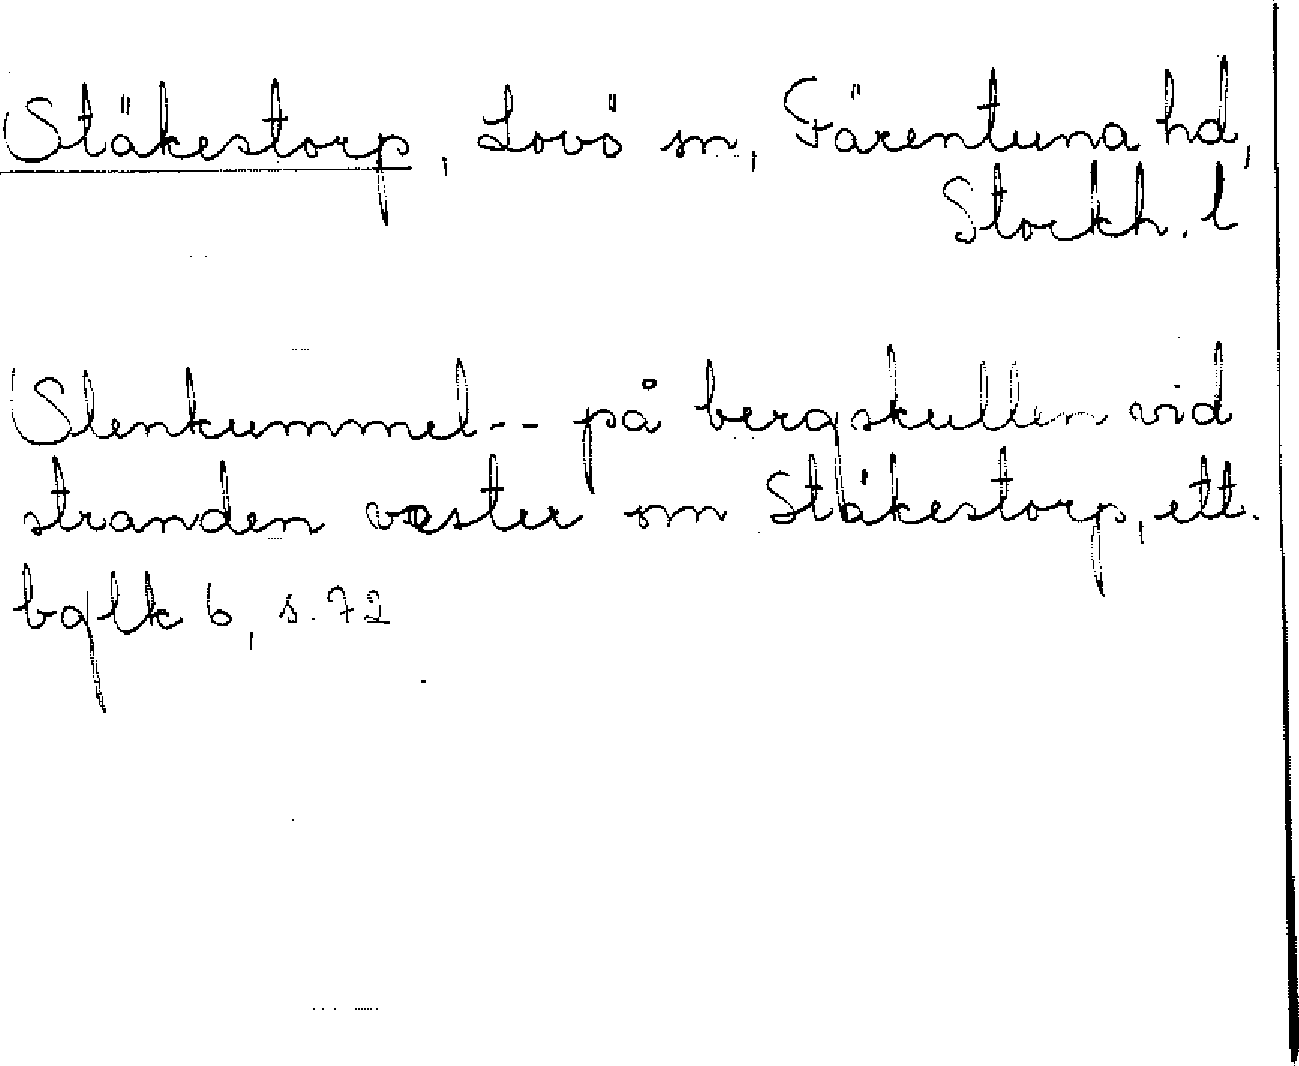 Stäkestorp, Lovö sn, Färentuna hd,
Stockh. l
Stenkummel-- på bergskullen vid
stranden vester om Stäkestorp, ett.
bglk 6, s. 72